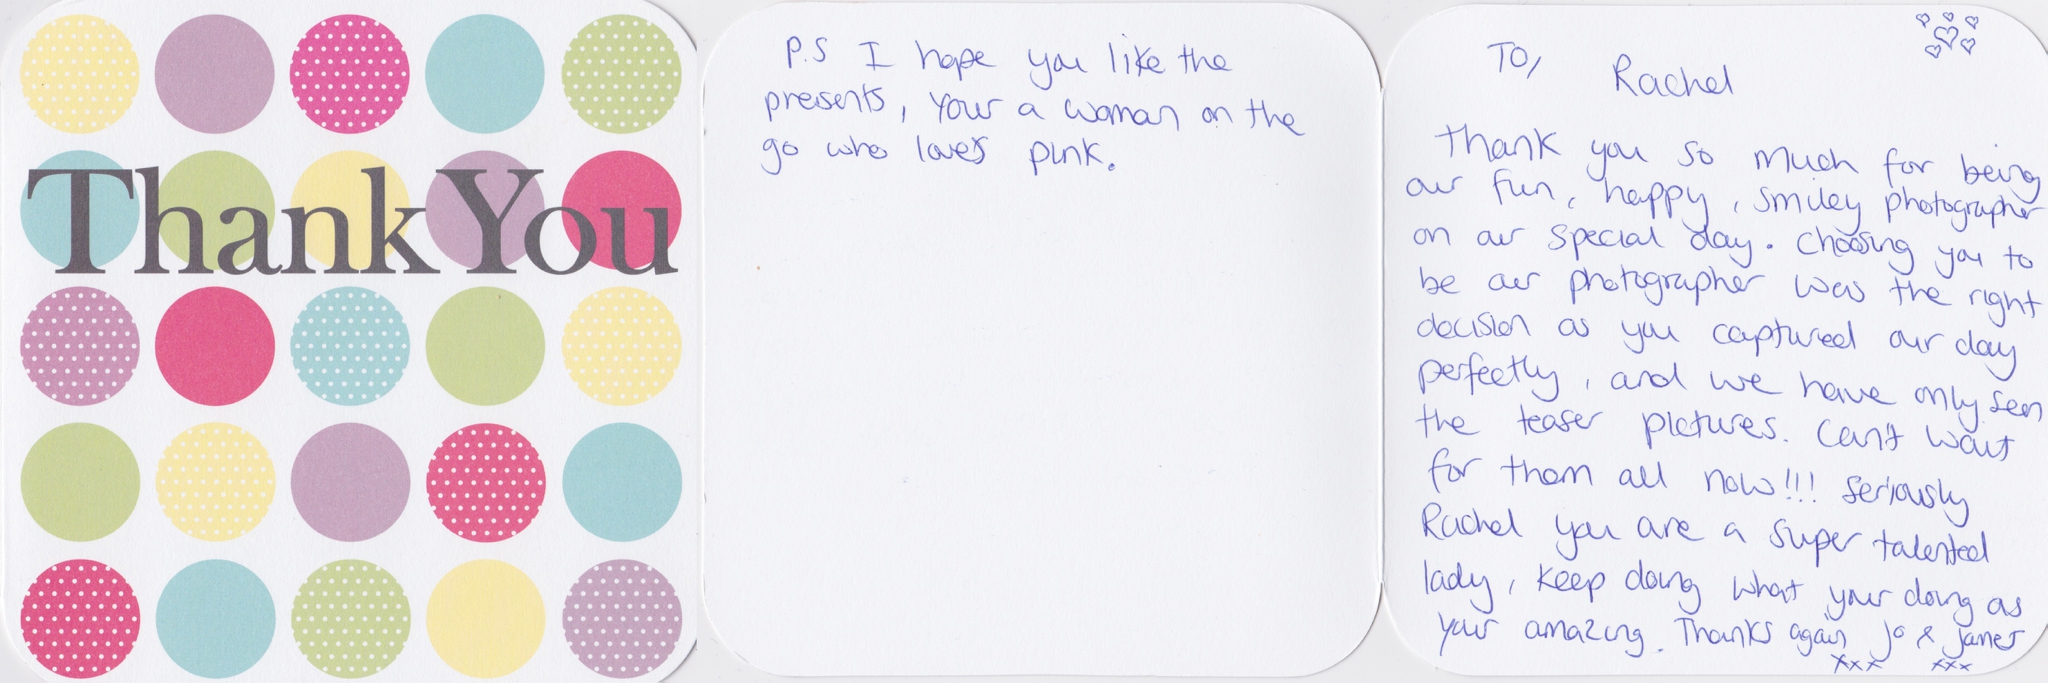 Thank You
P.S I hope you like the
presents, Your a woman on the
go who loves pink.
To,
Rachel
Thank you so much for being
our fun, happy, smiley photographer
on our special day. Choosing you to
be our photographer was the right
decision as you captured our day
perfectly, and we have only seen
the teaser pictures. Can't wait
for them all now!!! Seriously
Rachel you are a super talented
lady, keep doing what your doing as
your amazing. Thanks again Jo & James
xxx xxx